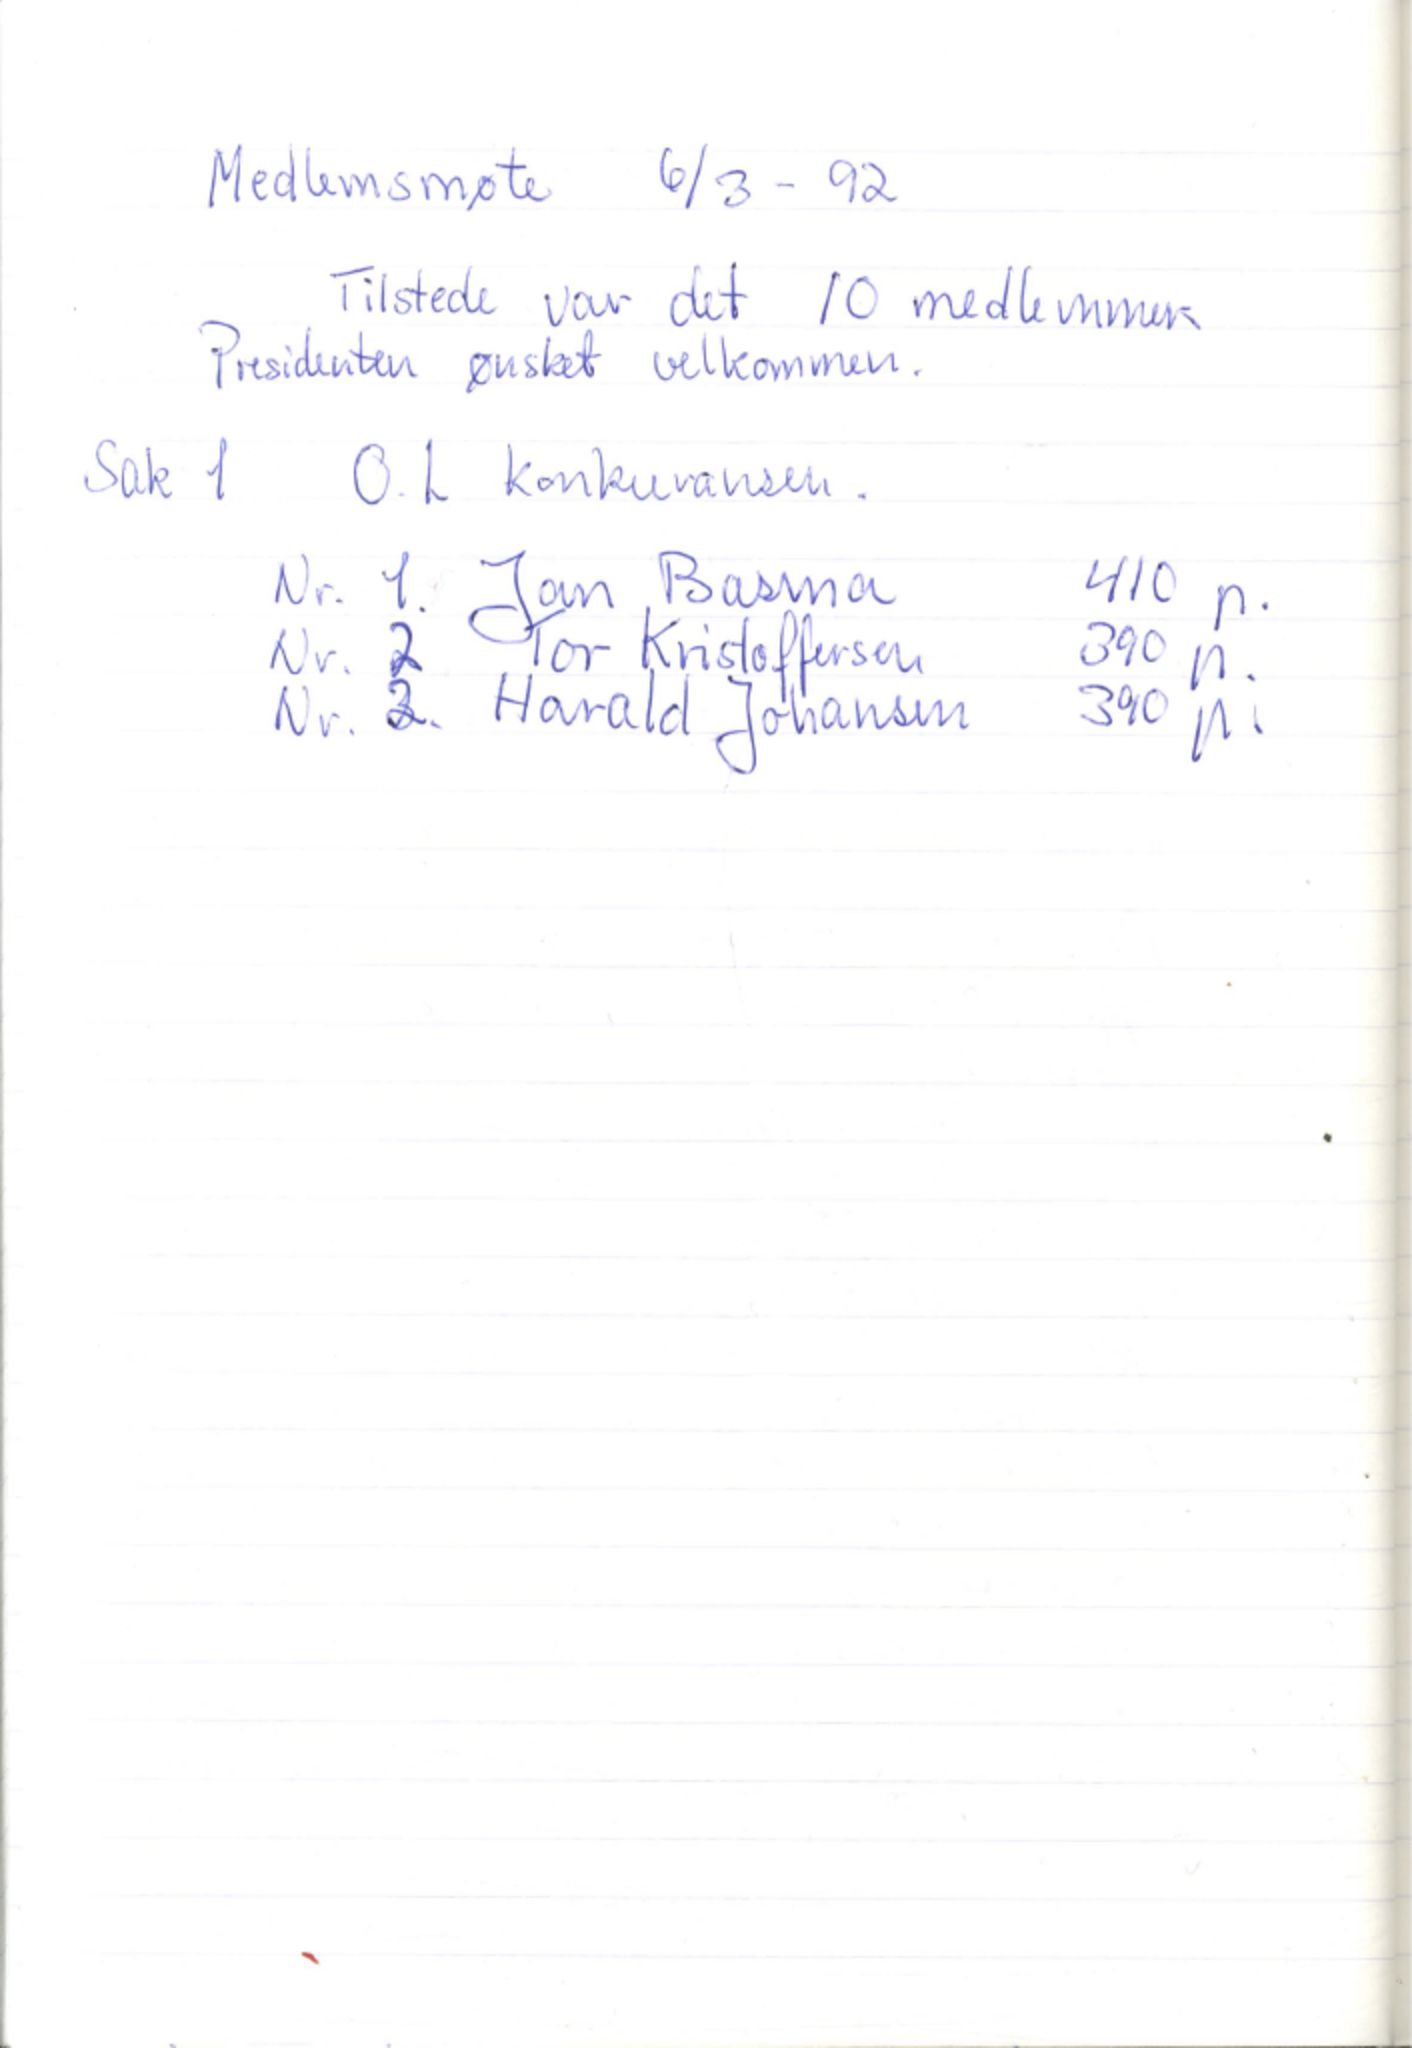 Medlemsmøte 6/3 - 92
Tilstede var det 10 medlemmer
Presidenten ønsket velkommen.
Sak 1 O.L konkuransen.
Nr. 1. Jan Basma 410 p.
Nr. 2 Tor Kristoffersen 390 p.
Nr. 2. Harald Johansen 390 p.